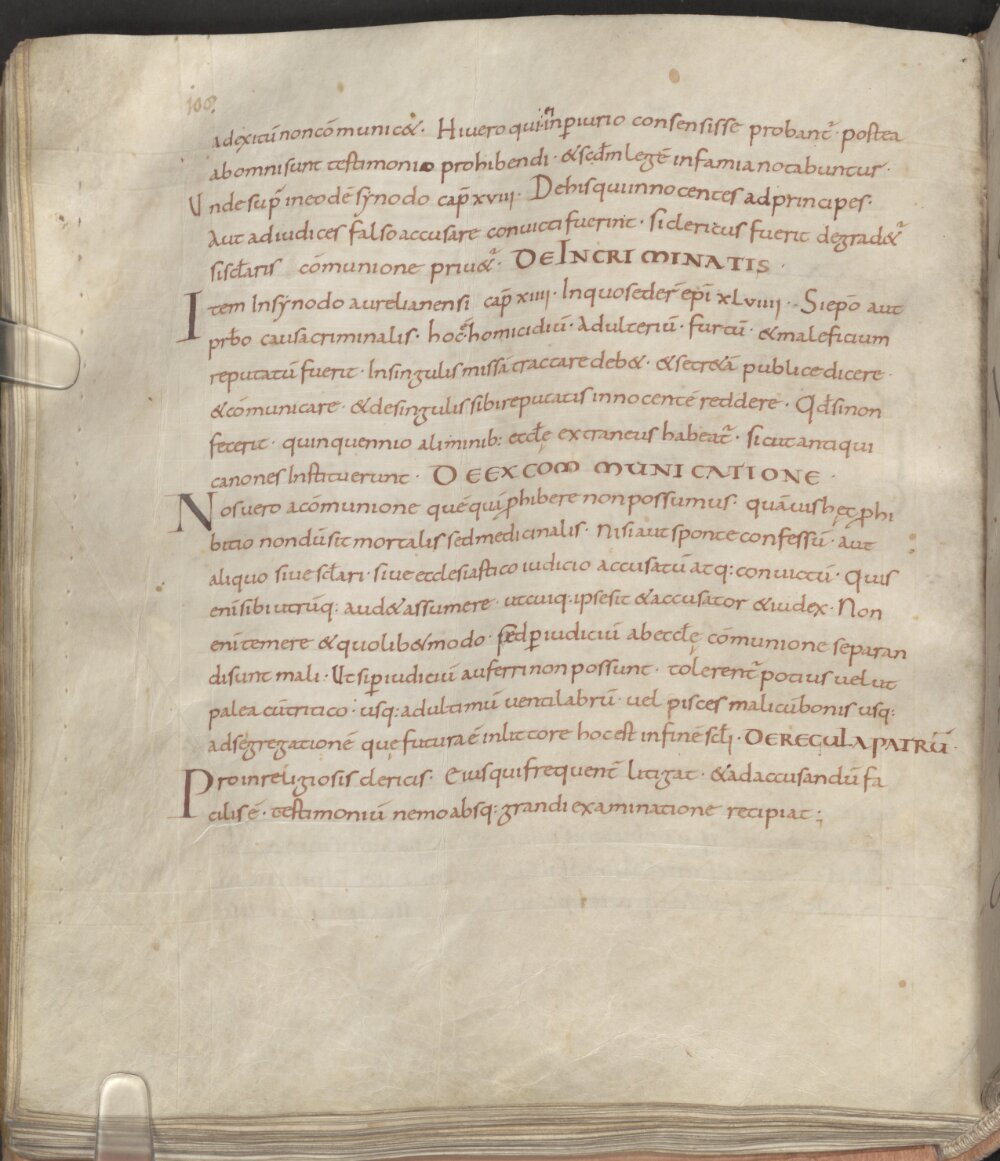 100
ad exitū non cōmunic&. Hi vero qui in ꝑiurio consensisse probant̄. postea
ab omni sunt testimonio prohibendi. & scd̄m legē infamia notabuntur.
Unde sup̄ in eodē synodo cap̄ xviii. De his qui innocentes ad principes.
Aut ad iudices falso accusare convicti fuerint. si clericus fuerit degrad&ur̄
si scl̄aris cōmunione priv&ur̄. DE INCRIMINATIS.
Item In synodo aurelianensi cap̄ xiiii. In quo seder̄ ep̄i xLviiii. Si ep̄o aut
prb̄o causa criminalis. hoc ē homicidiū. Adulteriū. furtū. & maleficium
reputatū fuerit. In singulis missā tractare deb&. & secr&ā publice dicere.
& cōmunicare. & de singulis sibi reputatis innocentē reddere. Qd̄ si non
fecerit. quinquennio a liminib: eccl̄e extraneus habeat̄. sicut antiqui
canones Instituerunt. DE EXCOMMUNICATIONE.
Nos vero a cōmunione quēquā ꝓhibere non possumus. quāvis hęc ꝓhi
bitio nondū sit mortalis sed medicinalis. Nisi aut sponte confessū. aut
aliquo sive scl̄ari. sive ecclesiastico iudicio accusatū atq: convictū. Quis
enī sibi utrūq: aud& assumere. ut cuiq: ipse sit & accusator & iudex. Non
enī temere & quolib& modo. sed ꝑ iudiciū ab eccl̄ę cōmunione separan
di sunt mali. Ut si ꝑ iudiciū auferri non possunt. tolerent̄ potius velut
palea cū tritico. usq: ad ultimū ventilabrū. vel pisces mali cū bonis usq:
ad segregationē que futura ē in littore hoc est in finē scl̄i. DE REGULA PATRŪ.
Pro inreligiosis clericis. Eius qui frequent̄ litigat. & ad accusandū fa
cilis ē. testimoniū nemo absq: grandi examinatione recipiat;